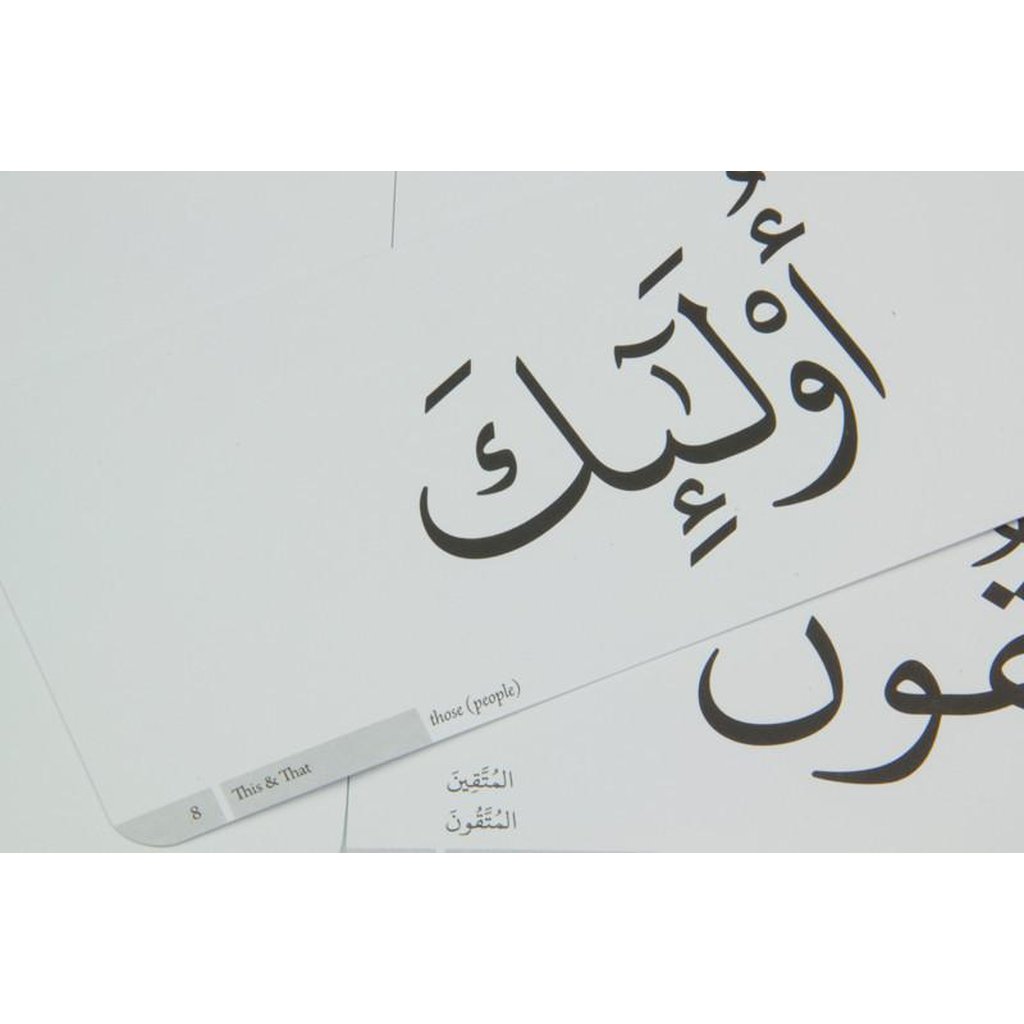 أُوْلَٰٓئِكَ
those (people)
This & That
8
المُتَّقِينَ
المُتَّقُونَ